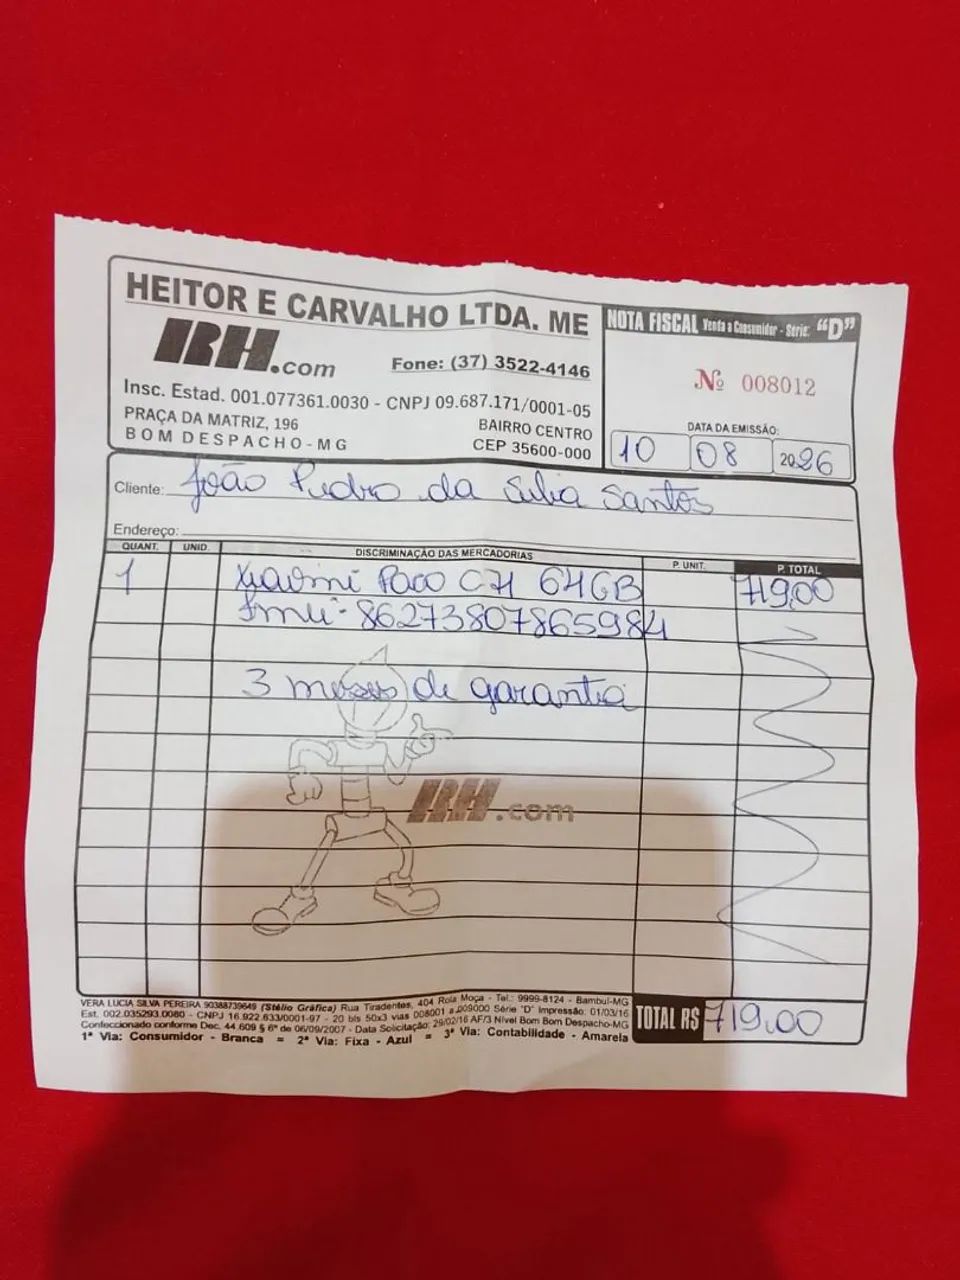 HEITOR E CARVALHO LTDA. ME
RH.com
Fone: (37) 3522-4146
Insc. Estad. 001.077361.0030 - CNPJ 09.687.171/0001-05
PRAÇA DA MATRIZ, 196 BAIRRO CENTRO
BOM DESPACHO - MG CEP 35600-000
NOTA FISCAL Venda a Consumidor - Série: "D"
Nº 008012
DATA DA EMISSÃO:
10 08 2026
Cliente: João Pedro da Silva Santos
Endereço:
QUANT. UNID. DISCRIMINAÇÃO DAS MERCADORIAS P. UNIT. P. TOTAL
1 Xiaomi Poco C71 64GB 719,00
Imei - 86273807865984
3 meses de garantia
RH.com
VERA LUCIA SILVA PEREIRA 90388739649 (Stélio Gráfica) Rua Tiradentes, 404 Rola Moça - Tel.: 9999-8124 - Bambuí-MG
Est. 002.035293.0080 - CNPJ 16.922.633/0001-97 - 20 bls 50x3 vias 008001 a 009000 Série "D" Impressão: 01/03/16
Confeccionado conforme Dec. 44.609 § 6º de 06/09/2007 - Data Solicitação: 29/02/16 AF/3 Nível Bom Bom Despacho-MG
1ª Via: Consumidor - Branca = 2ª Via: Fixa - Azul = 3ª Via: Contabilidade - Amarela
TOTAL R$ 719,00